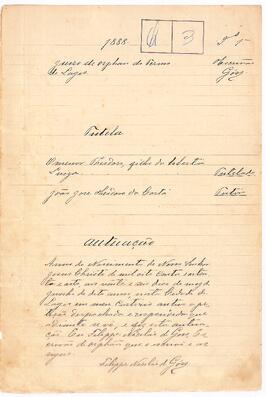 1888
6 3
Juizo de orphãos do Termo Escrivão
de Lages Góss
Tutela
O menor Theodoro, filho da liberta
Luiza Tutelado
João José Theodoro da Costa Tutor
Autuação
Anno do Nascimento de Nosso Senhor
Jesus Christo de mil oito centos oitenta
e oito, aos vinte e um dias do mez de
do dito anno nesta Cidade de
Lages em meu Cartorio autuo a pe-
tição despachada e respondida que
adiante se vê, e fiz esta autua-
ção. Eu Felippe Nicoláo de Góss, Es-
crivão de orphãos que o escrevi e as-
signo.
Felippe Nicoláo de Góss